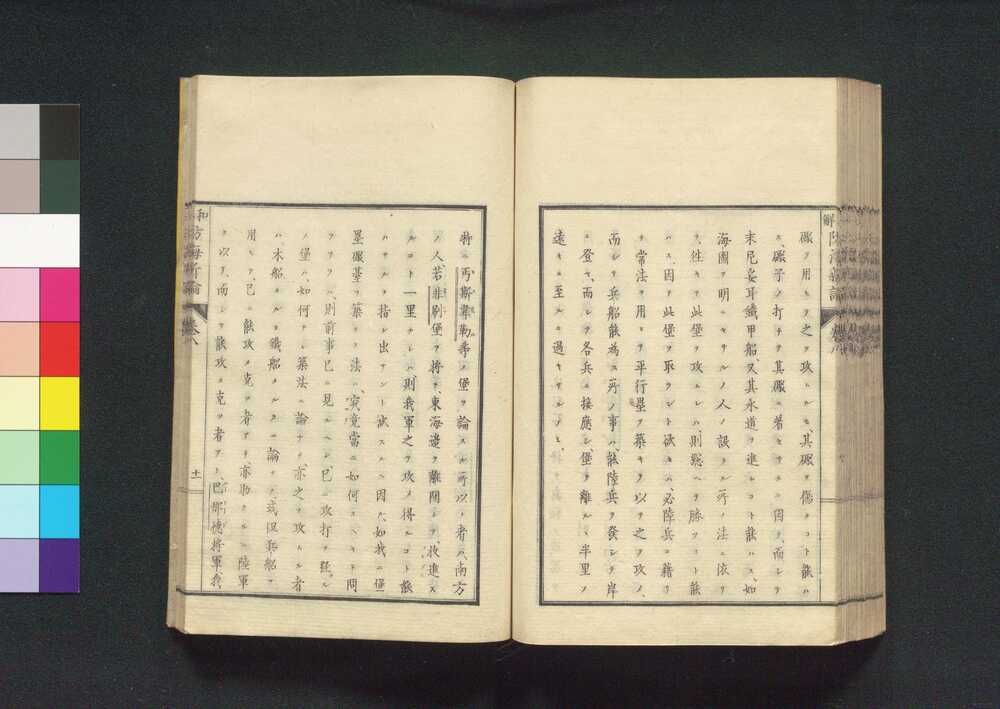 礮ヲ用ヒテ之ヲ攻ムルモ、其礮ヲ傷クコト能ハ
ス、礮子ノ打チ其礮ニ著セサルニ因ル、而シテ
末尼妥耳鐵甲船、又其水道ヲ進ムコト能ハス、如
海圖ヲ明ニセサルノ人ノ誤ル所ノ法ニ依リ
テ、往キテ此堡ヲ攻ムレハ、則懸ヘテ勝ツコト能
ハス、因テ此堡ヲ取ラント欲セハ、必陸兵ニ藉リ
テ常法ヲ用ヒテ平行壘ヲ築キ、以テ之ヲ攻メ、
而シテ兵船能為ス所ノ事ハ、能陸兵ヲ發シテ岸
ニ登セ、而シテ各兵ニ接應シ、堡ヲ離ル、半里ヲ
遠キニ至ルニ過キサルノミ、
特ニ丐斯韋勒秀ノ堡ヲ論スル所以ノ者ハ、南方
ノ人若非別堡ヲ将テ、東海邊ヲ離開シテ、收進ス
ルコト一里ナレハ、則我軍之ヲ攻メ得ルコト能
ハサルヲ指シ出サント欲スルニ因ル、如我ニ堡
壘礮臺ヲ築クノ法ハ、究竟當ニ如何スヘキト問
フアラハ、則前事已ニ見ルヘシ、已ニ攻打ヲ經ル
ノ堡ハ、如何ナル築法ニ論ナク、亦之ヲ攻ムル者
ハ、木船タルヨリ鐵船タルニ論ナク、或但兵船ヲ
用ヒテ、已ニ能攻メ克ツ者アリ、亦助クルニ陸軍
ヲ以テ、而シテ能攻メ克ツ者アリ、巴那德将軍、我
十一